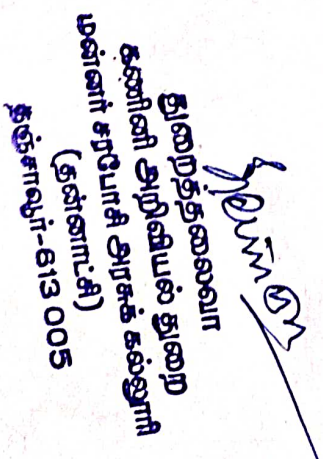 துறைத்தலைவர்
கணினி அறிவியல் துறை
மன்னர் சரபோசி அரசுக் கல்லூரி
(தன்னாட்சி)
தஞ்சாவூர்-613 005